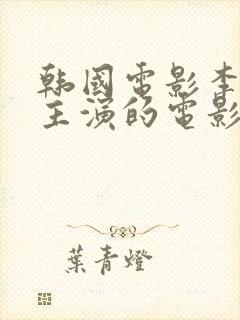 韩國電影李
主演的電影
葉青燈